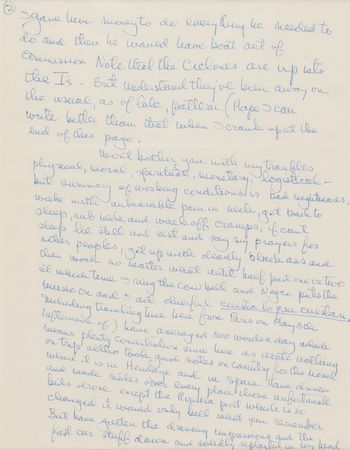 (2)
I gave him money to do everything he needed to
do and then he would have boat out of
commission. Note that the Cyclones are up into
the Is – But understand they've been away on
the usual, as of late, pattern (Hope I can
write better than that when I crank up at the
end of this page.
Wont bother you with my troubles
physical, moral, spiritual, monetary, logistical –
but summary of working conditions is bad nightmares,
wake with unbearable pain in neck, get back to
sleep, rub neck and walk off cramps, if cant
sleep lie still and rest and say my prayers for
other peoples, get up with deadly black ass and
then work no matter what until half past one or two
at which time I ring the cow bell and Negro puts the
music on and I act cheerful cuesta lo que cuesta.
Including travelling time here from Paris on May
(afternoon of) I have averaged 500 words a day which
means plenty
on trip altho took good notes on country for the novel
where it is in Hendaye and in Spain. Have driven
and made notes over every place those unfortunate
kids drove except the
changed it would only
But have gotten the driving
fast car stuff down and solidly in my head